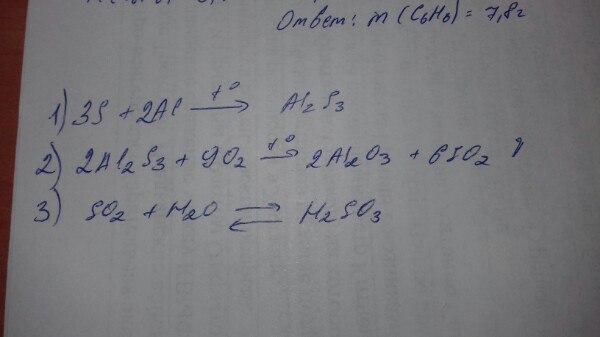 Ответ: m (C6H6) = 7,8г
1) 3S + 2Al t° → Al2S3
2) 2Al2S3 + 9O2 t° → 2Al2O3 + 6SO2 ↑
3) SO2 + H2O ⇄ H2SO3